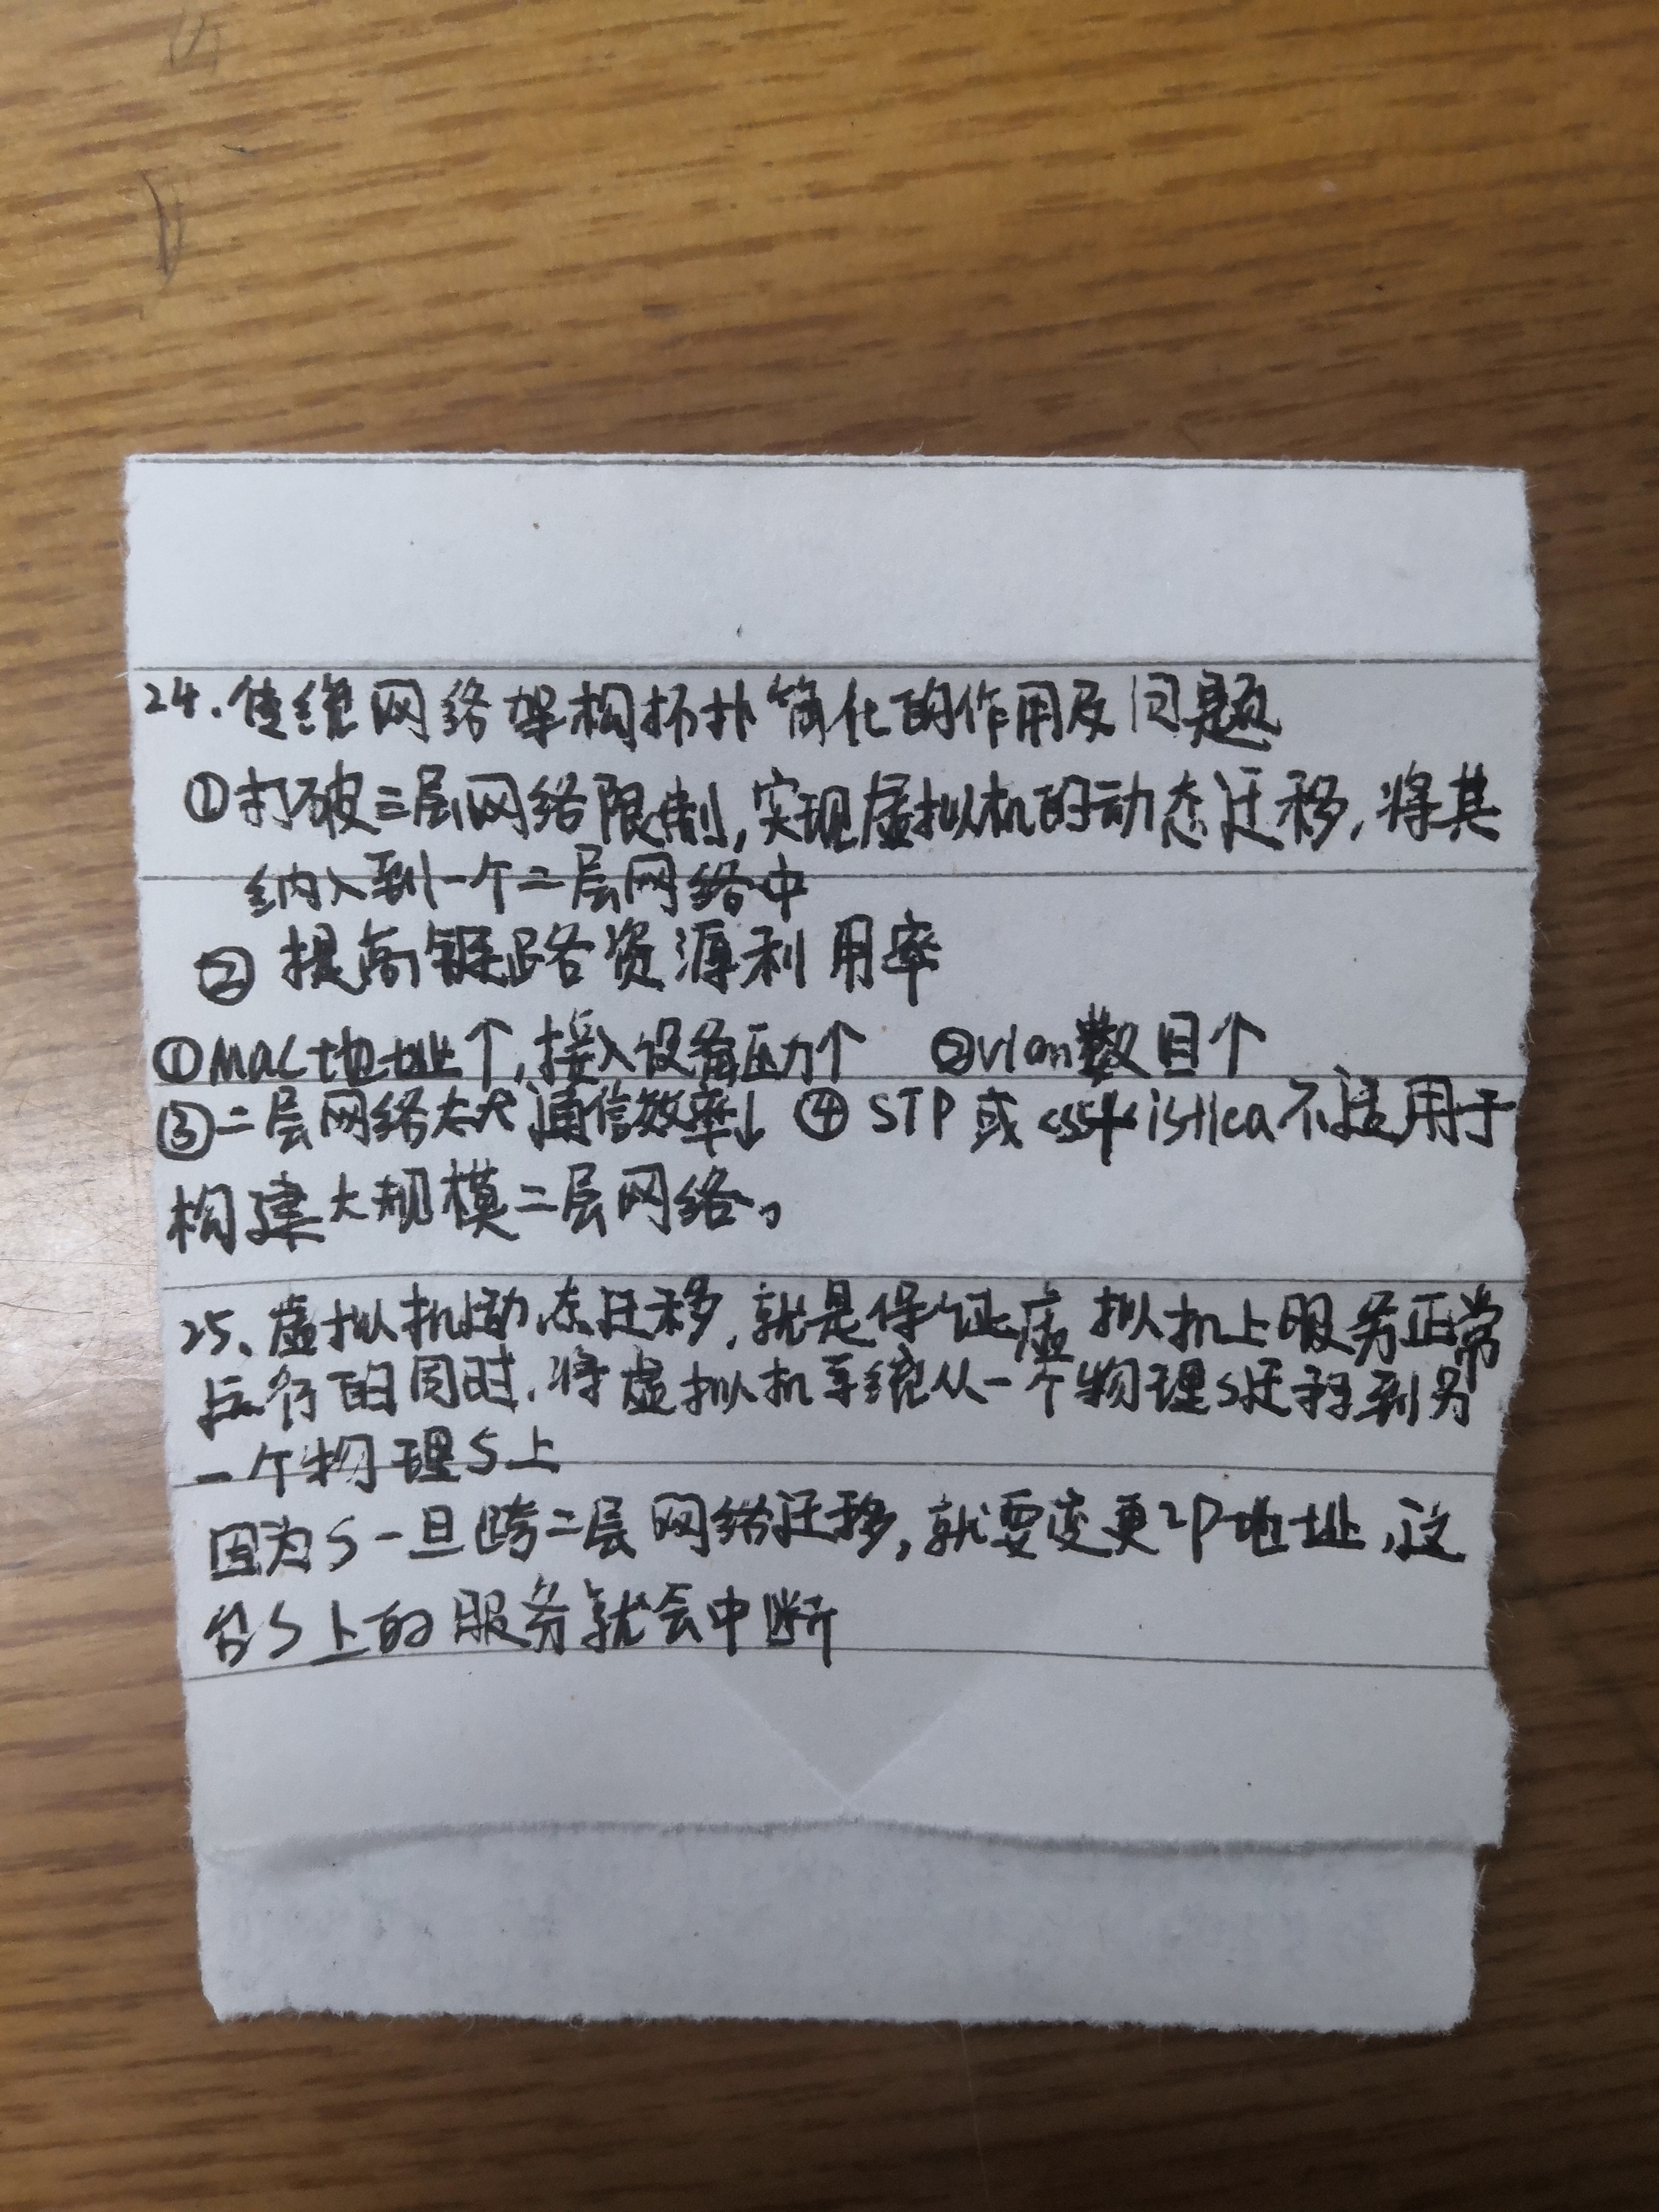 24.传统网络架构拓扑简化的作用及问题
①打破三层网络限制,实现虚拟机的动态迁移,将其
纳入到一个二层网络中
②提高链路资源利用率
①MAC地址↑,接入设备压力↑ ②vlan数目↑
③二层网络太大通信效率↓ ④STP或 不适用于
构建大规模二层网络。
25、虚拟机动态迁移,就是保证虚拟机上服务正常
运行的同时,将虚拟机系统从一个物理S迁移到另
一个物理S上
因为S一旦跨二层网络迁移,就要变更IP地址,这
台S上的服务就会中断